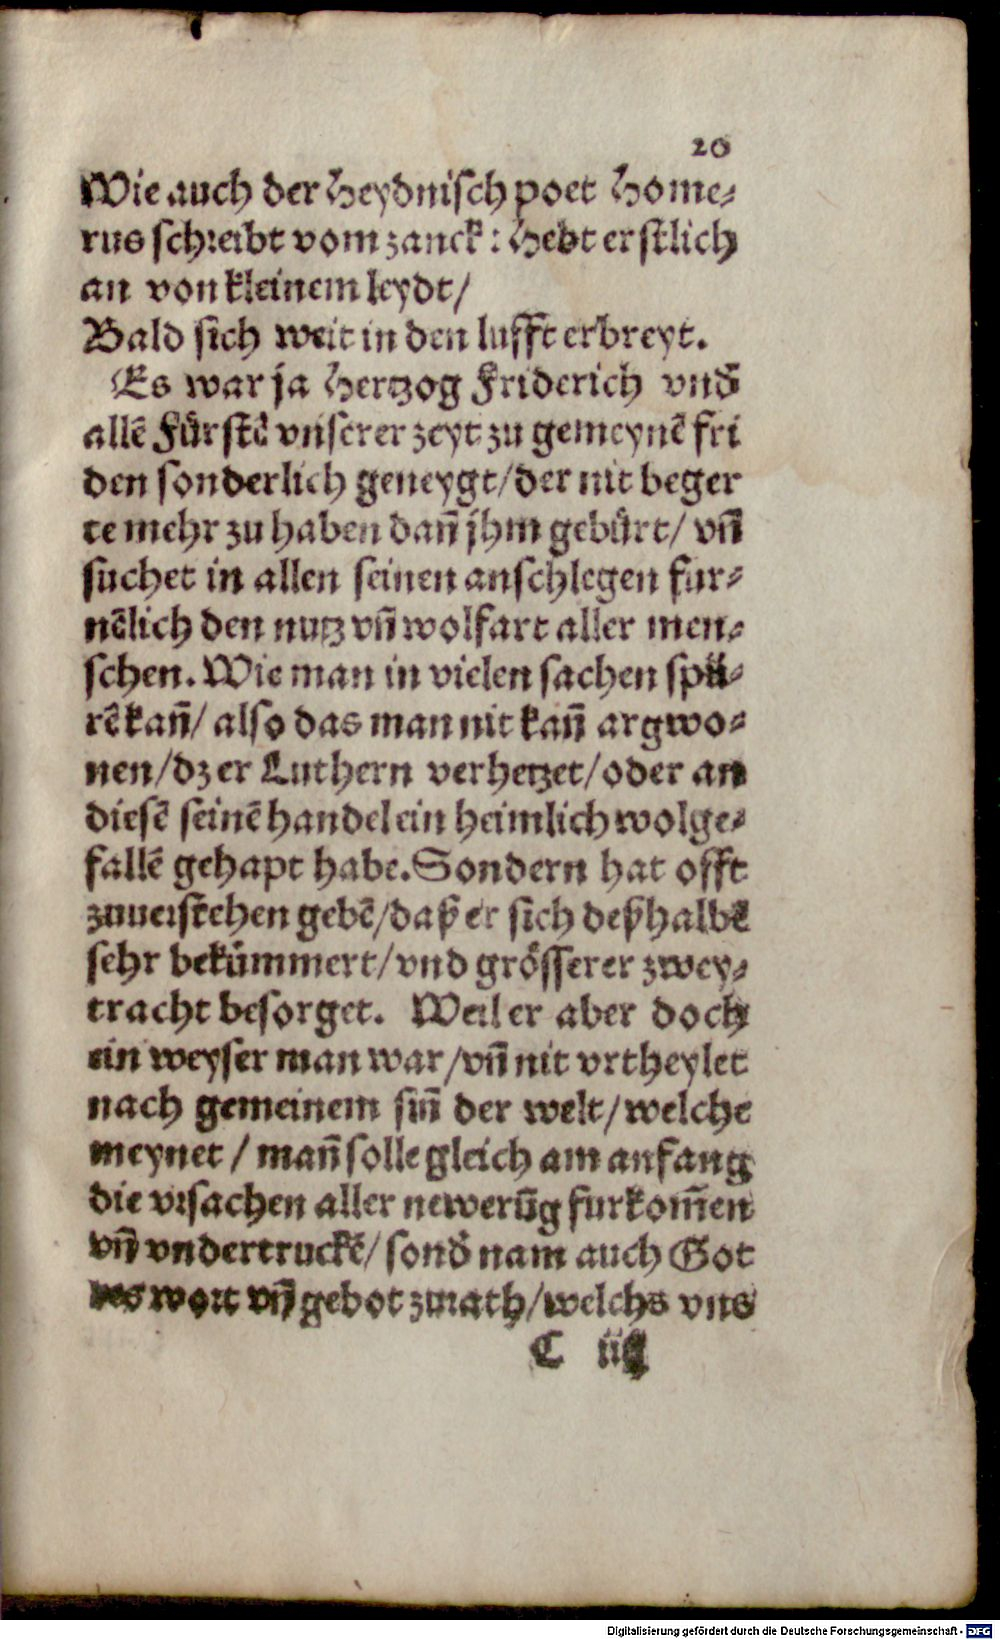 20
Wie auch der Heydnisch poet Home⸗
rus schreibt vom zanck: Hebt erstlich
an von kleinem leydt/
Bald sich weit in den lufft erbreyt.
Es war ja Hertzog Friderich vnd̛
allē Fürstē vnserer zeyt zu gemeynē fri
den sonderlich geneygt/der nit beger
te mehr zu haben dañ jhm gebürt/ vñ
suchet in allen seinen anschlegen fur⸗
nēlich den nutz vñ wolfart aller men⸗
schen. Wie man in vielen sachen spü⸗
rē kañ/ also das man nit kañ argwo⸗
nen/dz er Luthern verhetzet/oder an
diesē seinē handel ein heimlich wolge⸗
fallē gehapt habe. Sondern hat offt
zuuerstehen gebē/daß er sich deßhalbē
sehr bekümmert/vnd grösserer zwey⸗
tracht besorget. Weil er aber doch
ein weyser man war/vñ nit vrtheylet
nach gemeinem siñ der welt/welche
meynet / mañ solle gleich am anfang
die vrsachen aller newerũg furkom̄en
vñ vndertruckē/ sond̛ nam auch Got
tes wort vñ gebot zu rath/welchs vns
C iiij
Digitalisierung gefördert durch die Deutsche Forschungsgemeinschaft - DFG